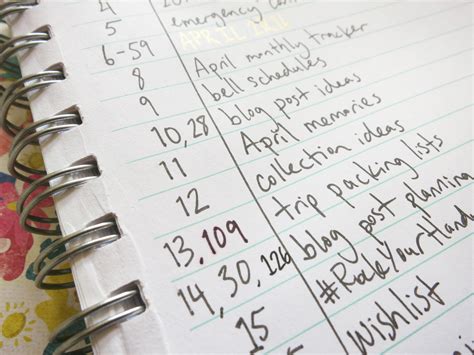 4 20
5 emergency
6-59 APRIL
8 April monthly tracker
9 bell schedules
10, 28 blog post ideas
11 April memories
12 collection ideas
13, 109 trip packing lists
14, 30, 126 blog post planning
15 #RockYourHand
wishlist